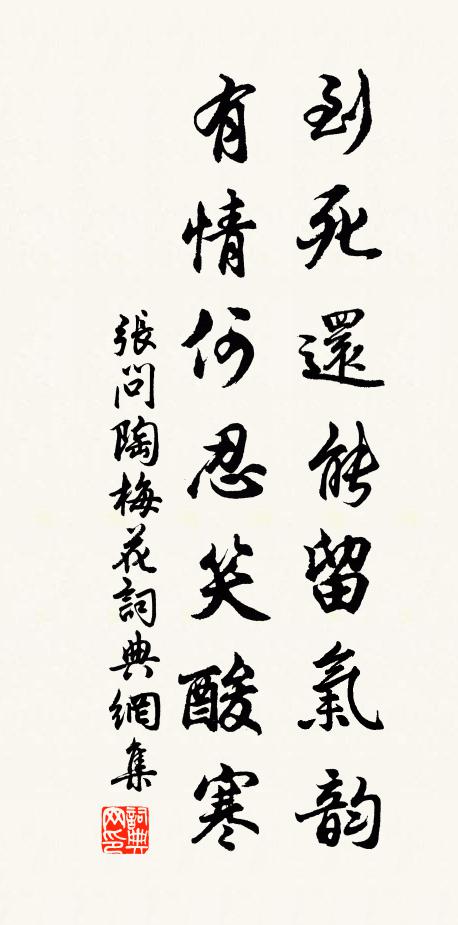 到死還能留氣韵
有情何忍笑酸寒
張問陶梅花詞典網集
詞典网印